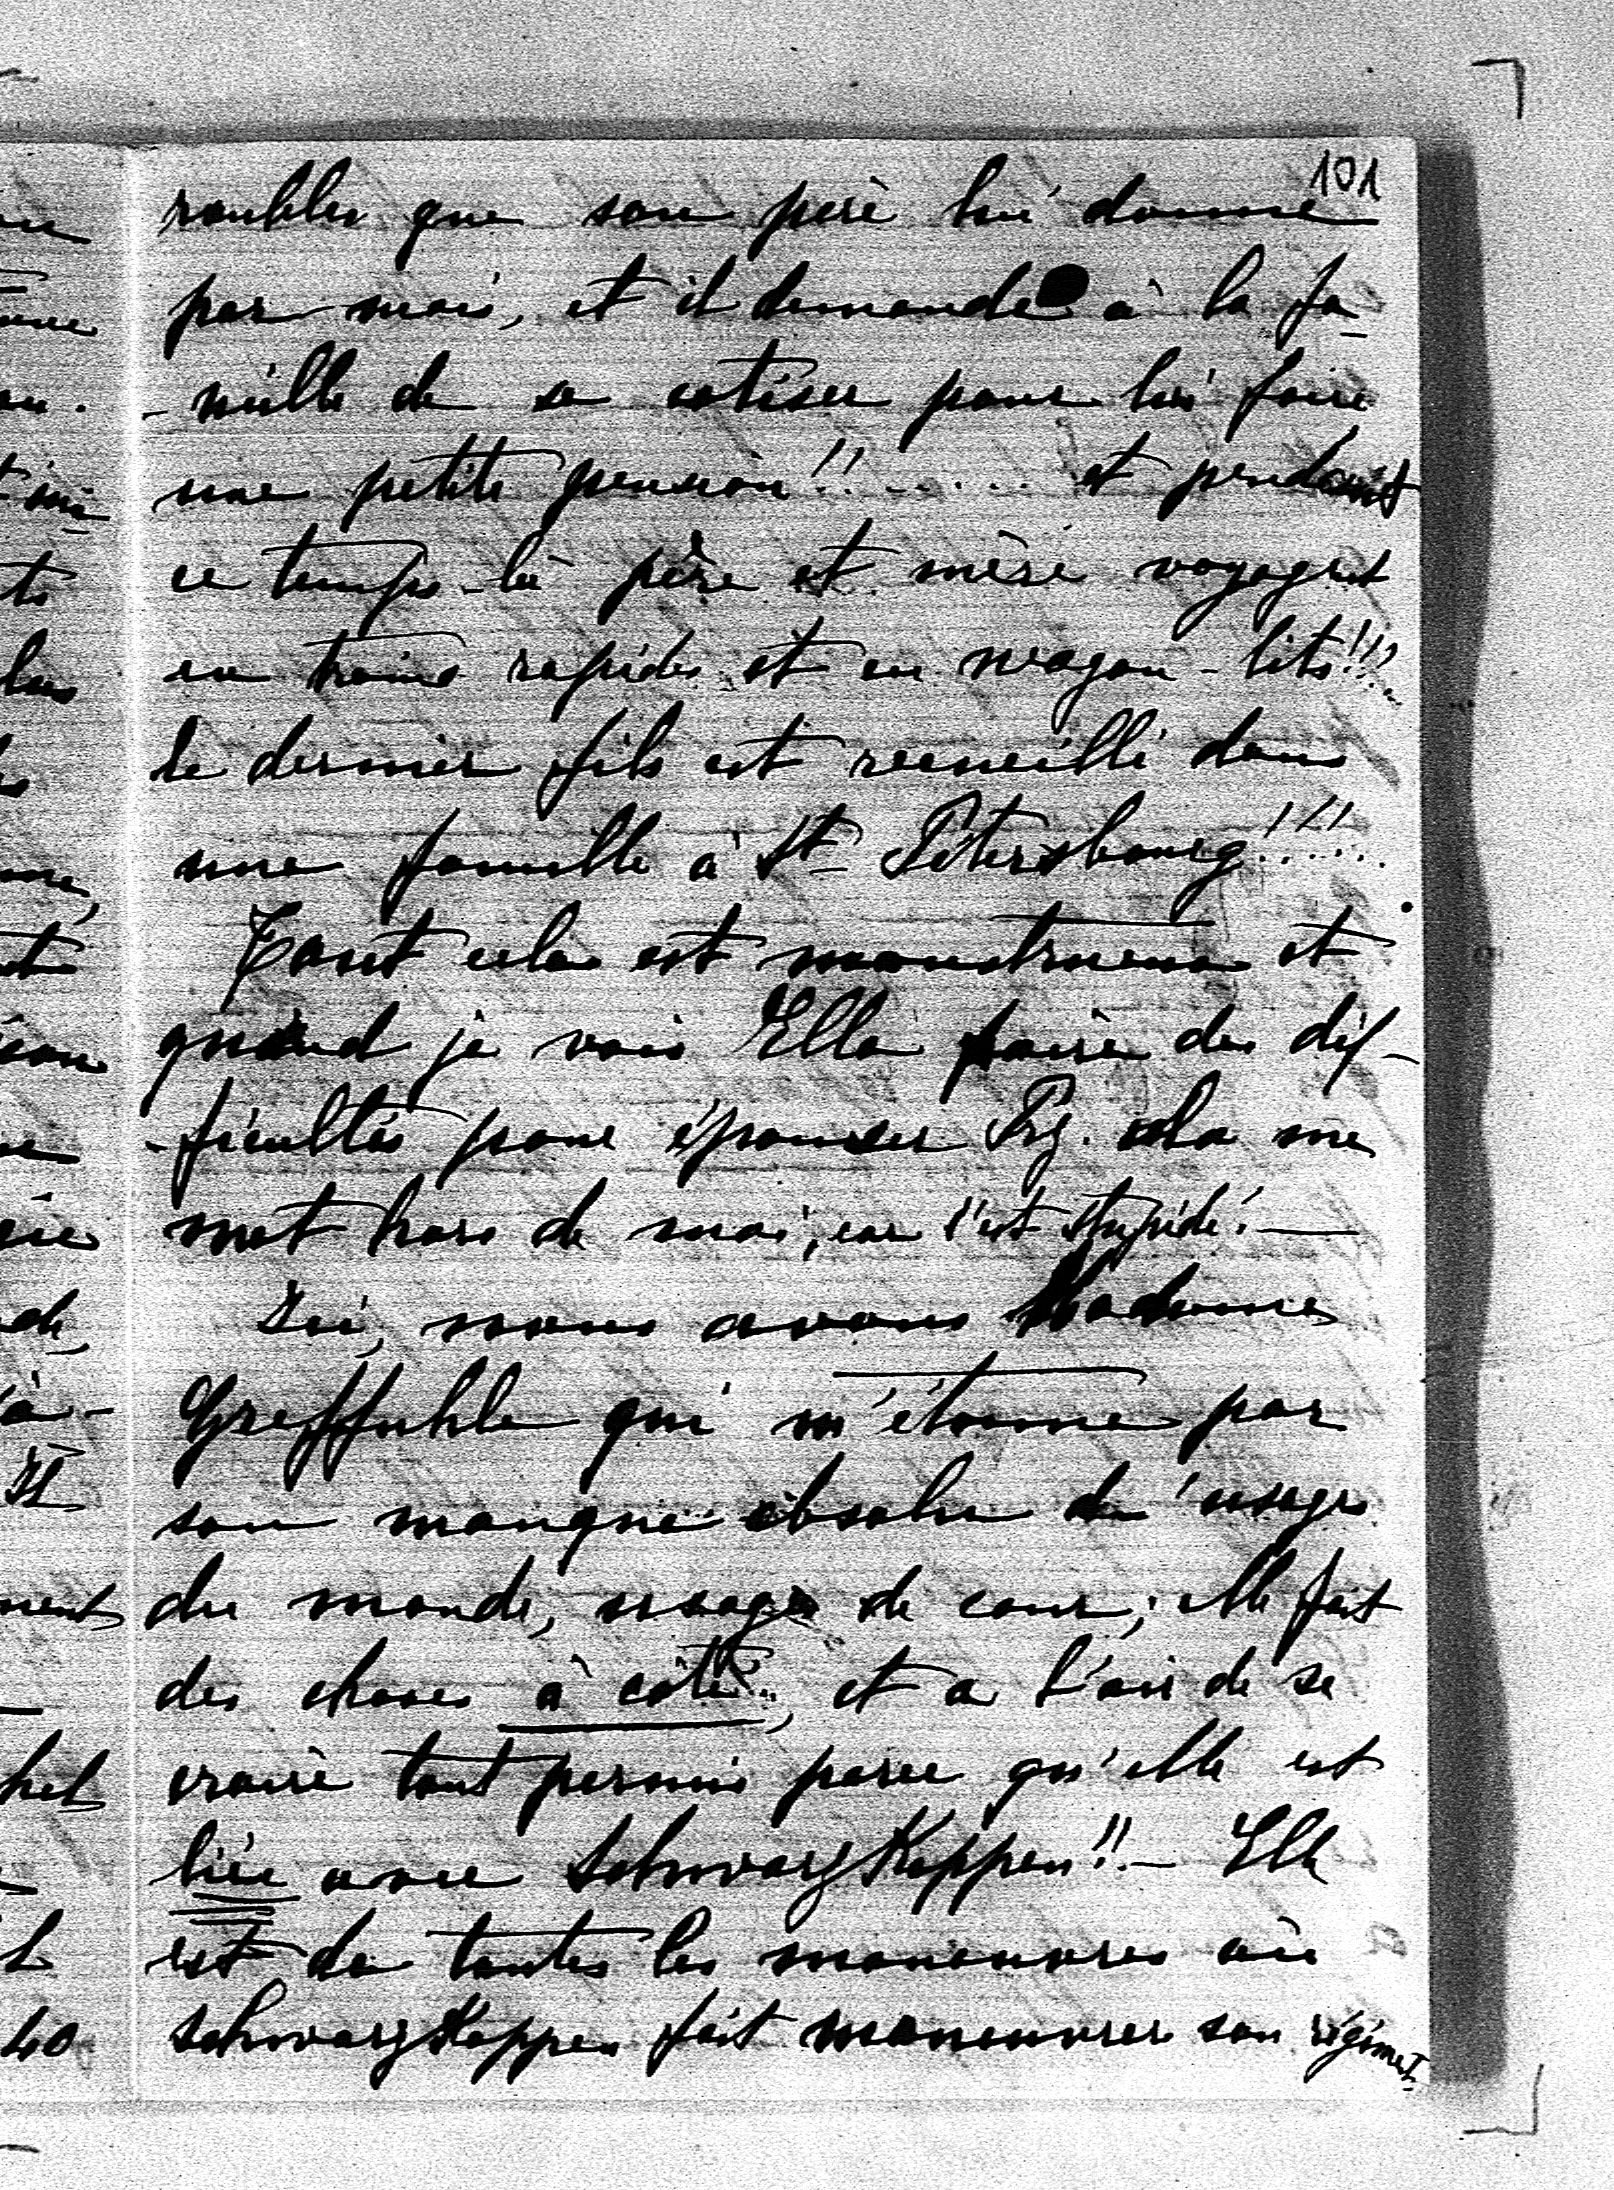 101
roubles que son père lui donne
par mois, et il demande à la fa
- mille de se cotiser pour lui faire
une petite pension!! ...... et pendant
ce temps-là père et mère voyagent
en trains rapides et en wagon-lits!!!..
le dernier fils est recueilli dans
une famille à St Pétersbourg!!!.....
Tout cela est monstrueux et
quand je vois Ella faire des dif-
-ficultés pour épouser Prz. cela me
met hors de moi, car c'est stupide! —
Ici, nous avons Madame
Greffuhle qui m'étonne par
son manque absolu d'usages
du monde, usages de cour; elle fait
des choses à côté..., et a l'air de se
croire tout permis parce qu'elle est
liée avec Schwarzkoppen!! — Elle
est de toutes les manœuvres où
Schwarzkoppen fait manœuvrer son régimt